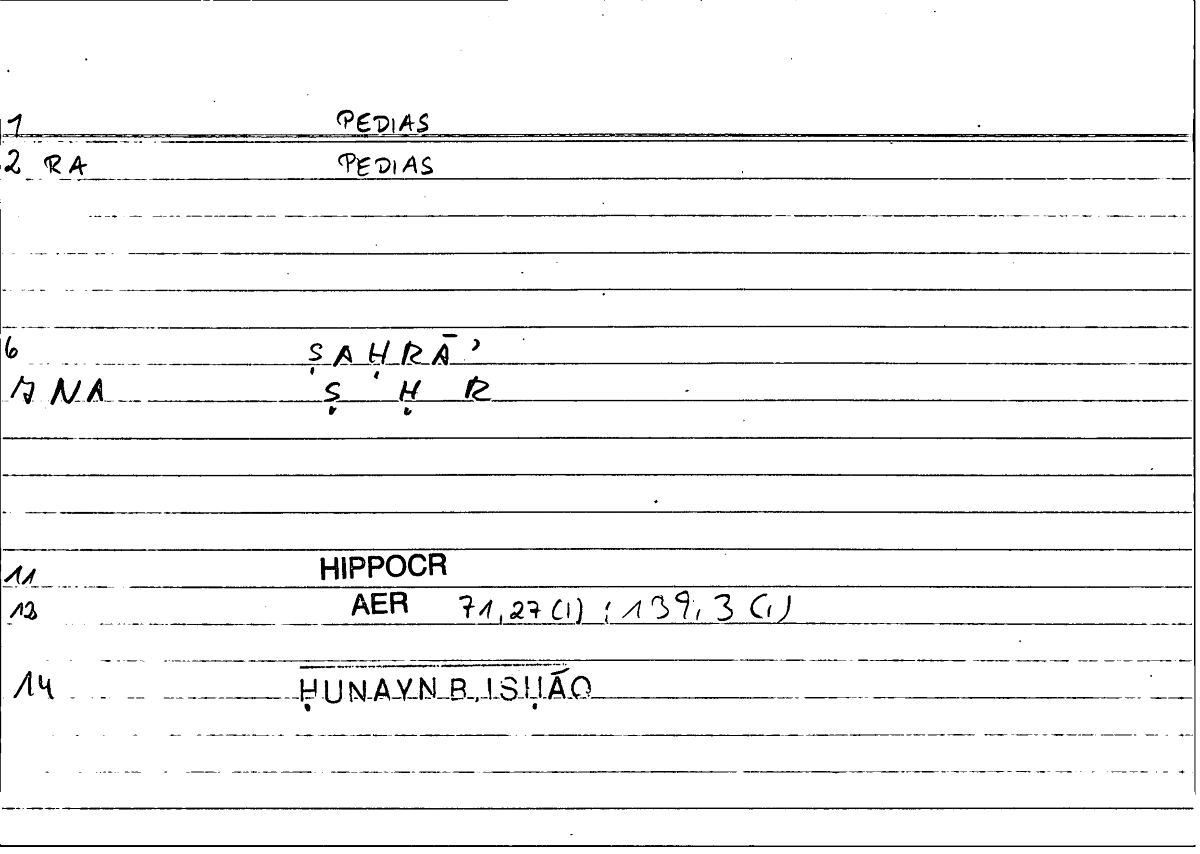 1 PEDIAS
2 RA PEDIAS
6 ṢAḤRĀʾ
7 NA Ṣ Ḥ R
11 HIPPOCR
13 AER 71,27(1) ; 139,3(1)
14 ḤUNAYN B. ISḤĀQ